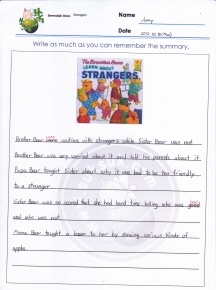 Berenstain Bears: Strangers
Name
Jenny
Date
Write as much as you can remember the summary.
The Berenstain Bears
LEARN ABOUT
STRANGERS
Brother Bear was cautious with strangers while Sister Bear was not.
Brother Bear was very worried about it and told his parents about it.
Papa Bear taught Sister about why it was bad to be too friendly
to a stranger.
Sister Bear was so scared that she had hard time telling who was good
and who was not.
Mama Bear taught a lesson to her by showing various kinds of
apples.